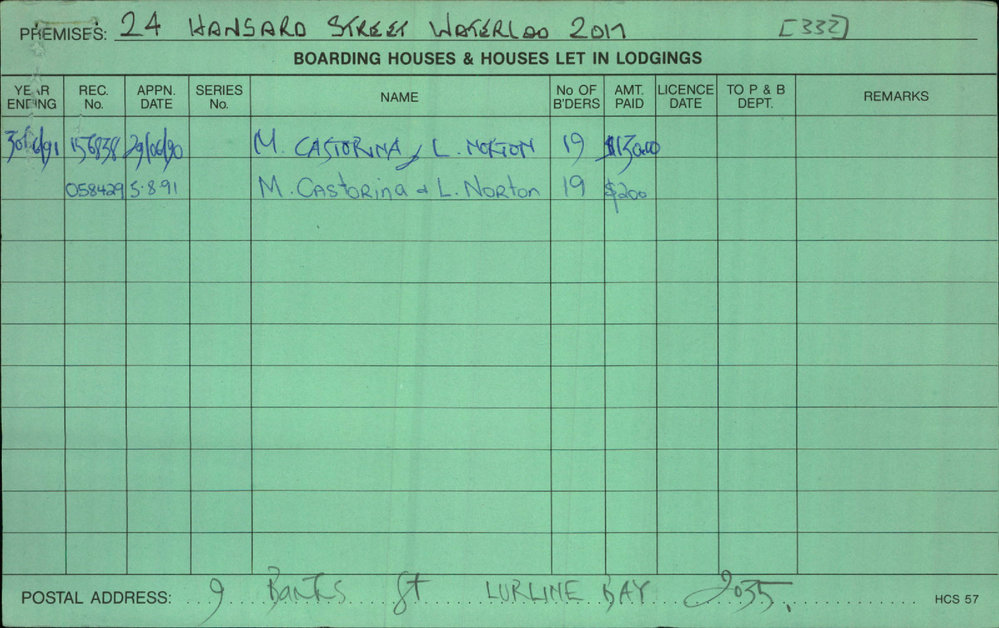 PREMISES: 24 HANSARD STREET WATERLOO 2017 [332]
BOARDING HOUSES & HOUSES LET IN LODGINGS
YEAR ENDING REC. No. APPN. DATE SERIES No. NAME No OF B'DERS AMT. PAID LICENCE DATE TO P & B DEPT. REMARKS
30/6/91 156838 29/06/90 M. CASTORINA, L. NORTON 19 $130.00
058429 5.8.91 M. Castorina & L. Norton 19 $200
POSTAL ADDRESS: 9 Banks St LURLINE BAY 2035. HCS 57